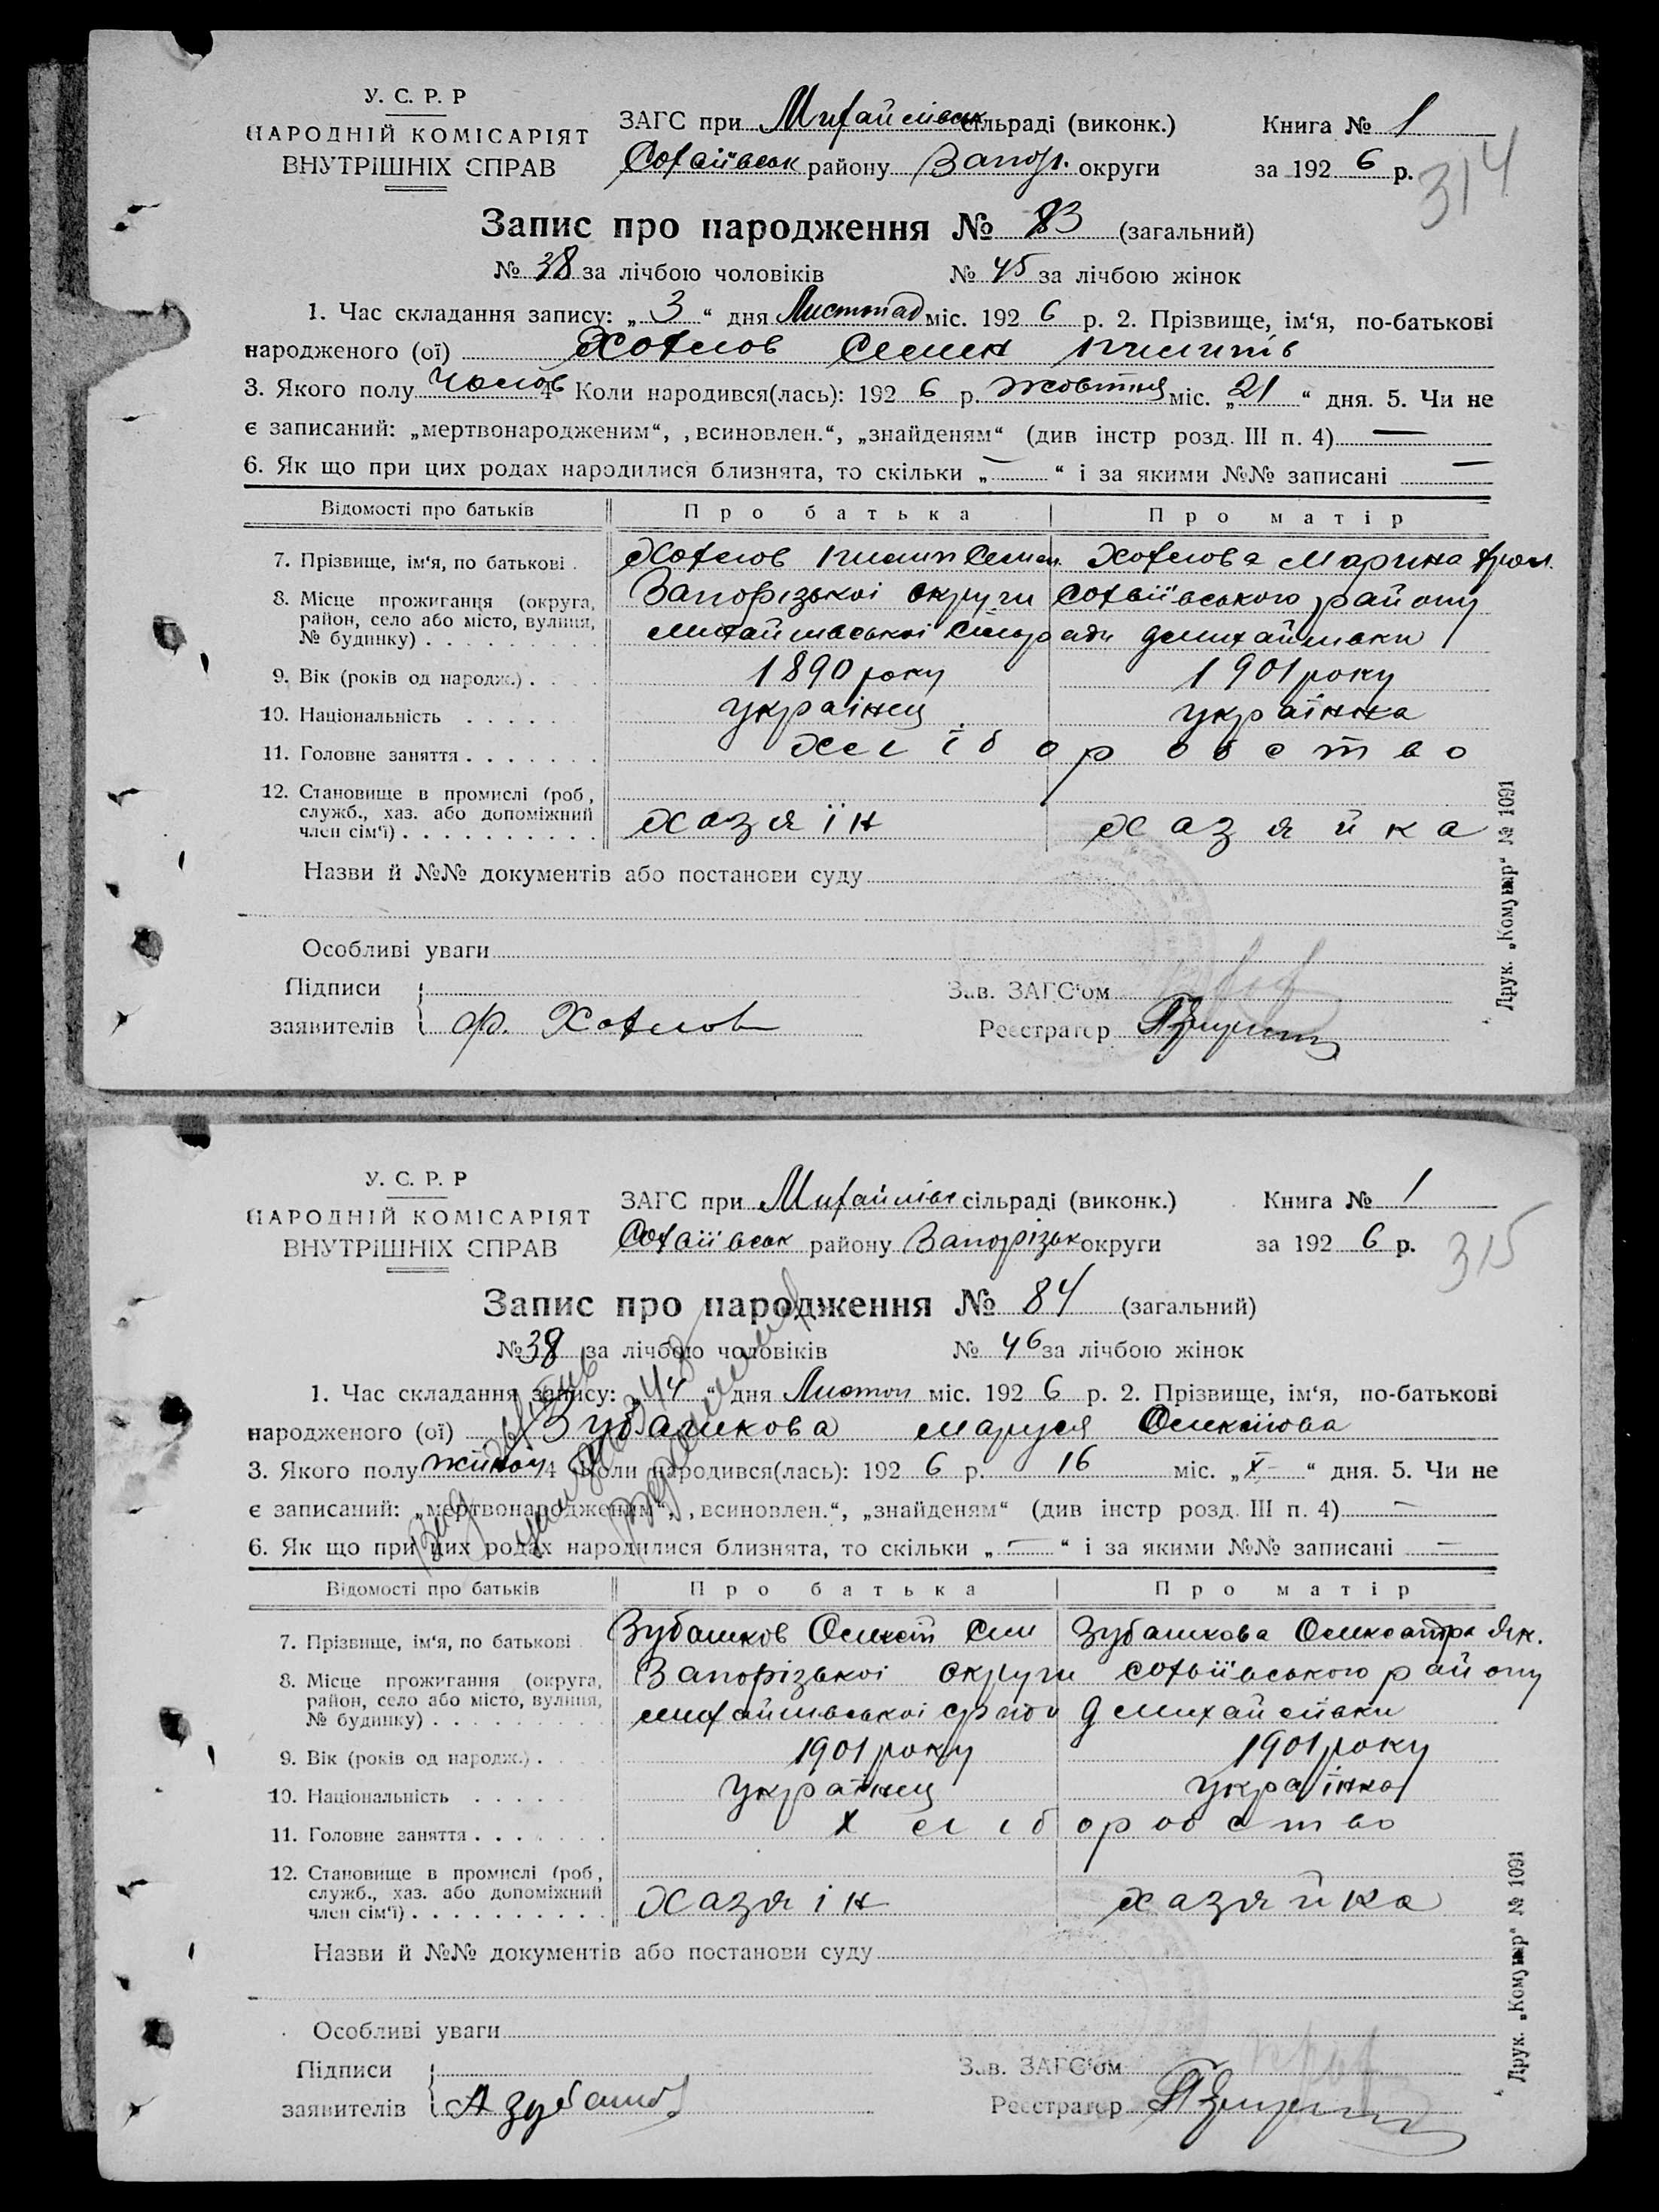 У. С. Р. Р
НАРОДНІЙ КОМІСАРІЯТ
ВНУТРІШНІХ СПРАВ
ЗАГС при Михайлівськ сільраді (виконк.) Книга № 1
Софіївськ району Запор. округи за 1926 р.
314
Запис про народження № 83 (загальний)
№ 38 за лічбою чоловіків № 45 за лічбою жінок
1. Час складання запису: „3“ дня Листопад міс. 1926 р. 2. Прізвище, ім‘я, по-батькові
народженого (ої) Хохлов Семен Пилипів
3. Якого полу чолов 4 Коли народився(лась): 1926 р. жовтня міс. „21“ дня. 5. Чи не
є записаний: „мертвонародженим“, „всиновлен.“, „знайденям“ (див інстр розд. III п. 4) —
6. Як що при цих родах народилися близнята, то скільки „—“ і за якими №№ записані —
Відомості про батьків Про батька Про матір
7. Прізвище, ім‘я, по батькові . Хохлов Пилип Семен. Хохлова Марина
8. Місце прожигання (округа, Запорізької округи Софіївського району
район, село або місто, вулиця, михайлівської сільради д михайлівки
№ будинку) . . . . . . . . .
9. Вік (років од народж.) . . . . 1890 року 1901 року
10. Національність . . . . . українец українка
11. Головне заняття . . . . . . . хліборобство
12. Становище в промислі (роб,
служб., хаз. або допоміжний хазяїн хазяйка
член сім‘ї) . . . . . . . . . .
Назви й №№ документів або постанови суду
Особливі уваги
Підписи Зав. ЗАГС‘ом
заявителів Ф. Хохлов Реєстратор
Друк. „Комунар“ № 1091
У. С. Р. Р
НАРОДНІЙ КОМІСАРІЯТ
ВНУТРІШНІХ СПРАВ
ЗАГС при Михайлівс сільраді (виконк.) Книга № 1
Софіївськ району Запорізьк округи за 1926 р.
315
Запис про народження № 84 (загальний)
№ 38 за лічбою чоловіків № 46 за лічбою жінок
1. Час складання запису: „4“ дня Листоп міс. 1926 р. 2. Прізвище, ім‘я, по-батькові
народженого (ої) Зубашкова маруся Олексіїова
3. Якого полу жіноч 4 Коли народився(лась): 1926 р. 16 міс. „X“ дня. 5. Чи не
є записаний: „мертвонародженим“, „всиновлен.“, „знайденям“ (див інстр розд. III п. 4) —
6. Як що при цих родах народилися близнята, то скільки „—“ і за якими №№ записані —
Відомості про батьків Про батька Про матір
7. Прізвище, ім‘я, по батькові Зубашков Олексій Сем Зубашкова Олександра Як.
8. Місце прожигання (округа, Запорізької округи софіївського району
район, село або місто, вулиця, михайлівської с/ради д михайлівки
№ будинку) . . . . . . . . .
9. Вік (років од народж.) . . . . 1901 року 1901 року
10. Національність . . . . . українец українка
11. Головне заняття . . . . . . . хліборобство
12. Становище в промислі (роб,
служб., хаз. або допоміжний хазяін хазяйка
член сім‘ї) . . . . . . . . . .
Назви й №№ документів або постанови суду
Особливі уваги
Підписи Зав. ЗАГС‘ом
заявителів А Зубашков Реєстратор
Друк. „Комунар“ № 1091